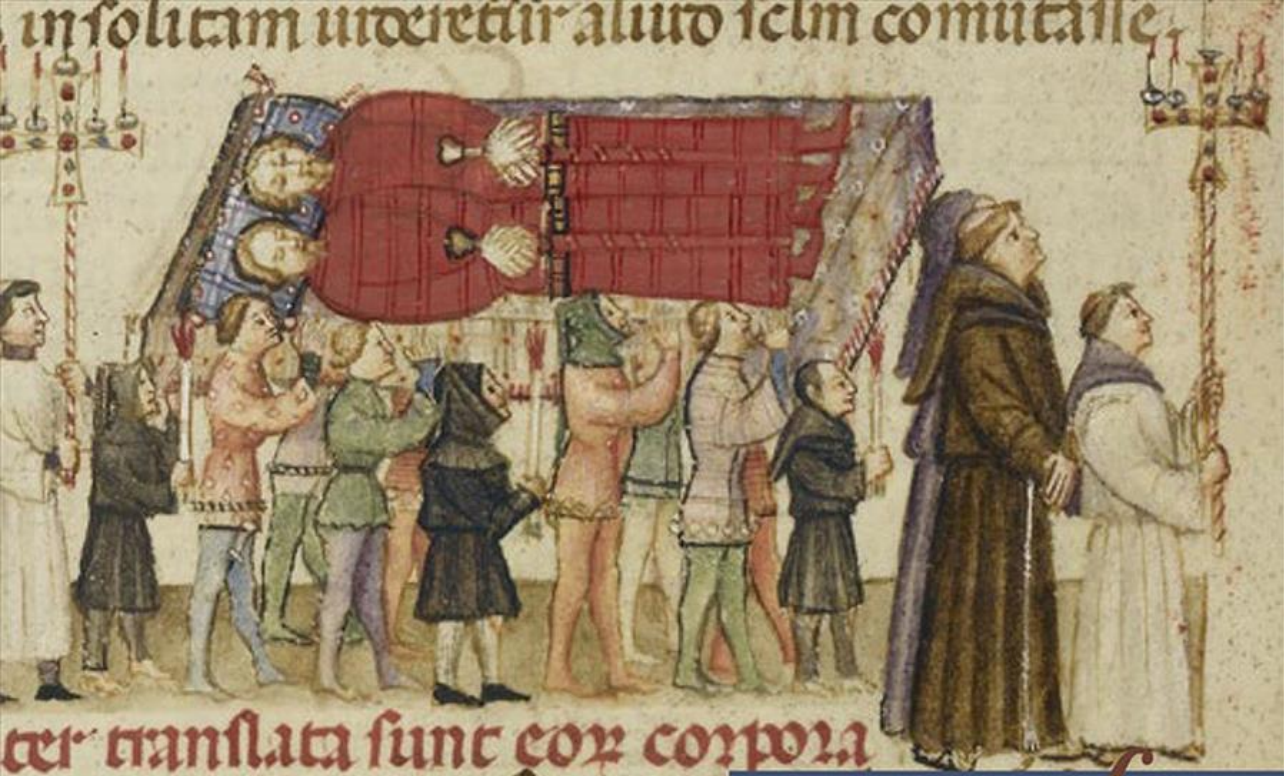 insolitam uideretur aliud sclm comutasse.
ter translata sunt eoꝝ corpora